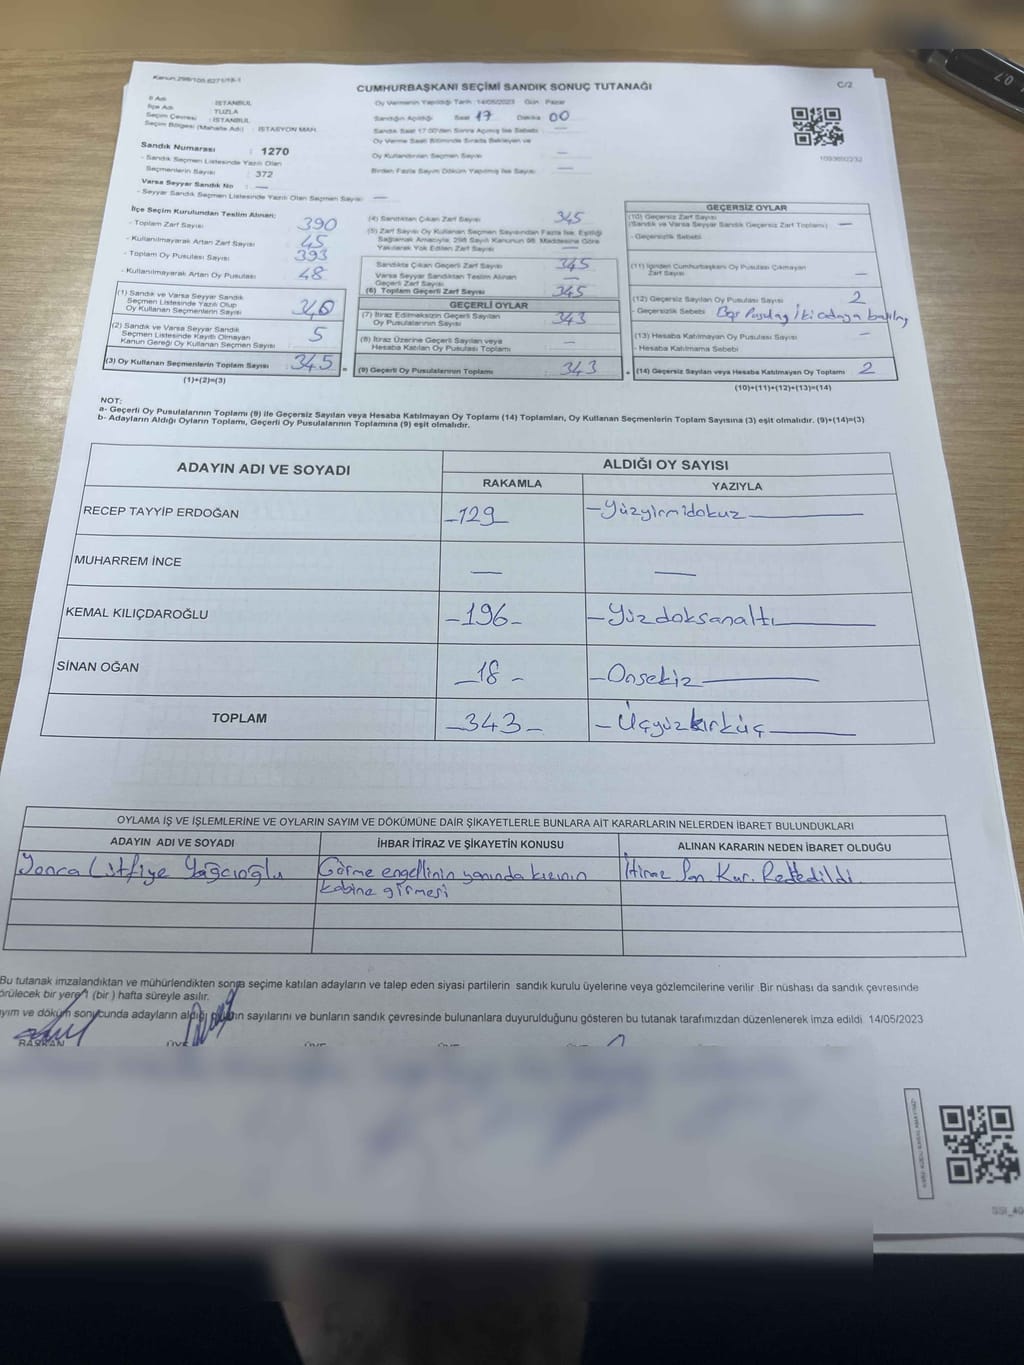 Kanun:298/108.6271/18-1
CUMHURBAŞKANI SEÇİMİ SANDIK SONUÇ TUTANAĞI
C/2
İl Adı : İSTANBUL
İlçe Adı : TUZLA
Seçim Çevresi : İSTANBUL
Seçim Bölgesi (Mahalle Adı) : İSTASYON MAH.
Oy Vermenin Yapıldığı Tarih :14/05/2023 Gün : Pazar
Sandığın Açıldığı Saat 17 Dakika 00
Sandık Saat 17:00'den Sonra Açılmış İse Sebebi —
Oy Verme Saati Bitiminde Sırada Bekleyen ve
Oy Kullandırılan Seçmen Sayısı —
Birden Fazla Sayım Döküm Yapılmış İse Sayısı —
Sandık Numarası : 1270
- Sandık Seçmen Listesinde Yazılı Olan
Seçmenlerin Sayısı : 372
Varsa Seyyar Sandık No : —
- Seyyar Sandık Seçmen Listesinde Yazılı Olan Seçmen Sayısı —
İlçe Seçim Kurulundan Teslim Alınan:
- Toplam Zarf Sayısı 390
- Kullanılmayarak Artan Zarf Sayısı 45
- Toplam Oy Pusulası Sayısı 393
- Kullanılmayarak Artan Oy Pusulası 48
(1) Sandık ve Varsa Seyyar Sandık
Seçmen Listesinde Yazılı Olup
Oy Kullanan Seçmenlerin Sayısı : 340
(2) Sandık ve Varsa Seyyar Sandık
Seçmen Listesinde Kayıtlı Olmayan
Kanun Gereği Oy Kullanan Seçmen Sayısı 5
(3) Oy Kullanan Seçmenlerin Toplam Sayısı : 345
(1)+(2)=(3)
(4) Sandıktan Çıkan Zarf Sayısı 345
(5) Zarf Sayısı Oy Kullanan Seçmen Sayısından Fazla İse, Eşitliği
Sağlamak Amacıyla, 298 Sayılı Kanunun 98. Maddesine Göre
Yakılarak Yok Edilen Zarf Sayısı —
Sandıkta Çıkan Geçerli Zarf Sayısı 345
Varsa Seyyar Sandıktan Teslim Alınan
Geçerli Zarf Sayısı —
(6) Toplam Geçerli Zarf Sayısı 345
GEÇERLİ OYLAR
(7) İtiraz Edilmeksizin Geçerli Sayılan
Oy Pusulalarının Sayısı : 343
(8) İtiraz Üzerine Geçerli Sayılan veya
Hesaba Katılan Oy Pusulası Toplamı —
(9) Geçerli Oy Pusulalarının Toplamı : 343
GEÇERSİZ OYLAR
(10) Geçersiz Zarf Sayısı
(Sandık ve Varsa Seyyar Sandık Geçersiz Zarf Toplamı) —
- Geçersizlik Sebebi
(11) İçinden Cumhurbaşkanı Oy Pusulası Çıkmayan
Zarf Sayısı —
(12) Geçersiz Sayılan Oy Pusulası Sayısı 2
- Geçersizlik Sebebi
(13) Hesaba Katılmayan Oy Pusulası Sayısı —
- Hesaba Katılmama Sebebi
(14) Geçersiz Sayılan veya Hesaba Katılmayan Oy Toplamı 2
(10)+(11)+(12)+(13)=(14)
NOT:
a- Geçerli Oy Pusulalarının Toplamı (9) ile Geçersiz Sayılan veya Hesaba Katılmayan Oy Toplamı (14) Toplamları, Oy Kullanan Seçmenlerin Toplam Sayısına (3) eşit olmalıdır. (9)+(14)=(3)
b- Adayların Aldığı Oyların Toplamı, Geçerli Oy Pusulalarının Toplamına (9) eşit olmalıdır.
ADAYIN ADI VE SOYADI
ALDIĞI OY SAYISI
RAKAMLA
YAZIYLA
RECEP TAYYİP ERDOĞAN -129- -Yüzyirmidokuz-
MUHARREM İNCE — —
KEMAL KILIÇDAROĞLU -196- -Yüzdoksanaltı-
SİNAN OĞAN -18- -Onsekiz-
TOPLAM -343- -Üçyüzkırküç-
OYLAMA İŞ VE İŞLEMLERİNE VE OYLARIN SAYIM VE DÖKÜMÜNE DAİR ŞİKAYETLERLE BUNLARA AİT KARARLARIN NELERDEN İBARET BULUNDUKLARI
ADAYIN ADI VE SOYADI
İHBAR İTİRAZ VE ŞİKAYETİN KONUSU
ALINAN KARARIN NEDEN İBARET OLDUĞU
Yonca Lütfiye Yağcıoğlu
Görme engellinin yanında kızının
kabine girmesi
İtiraz San Kur. Reddedildi.
Bu tutanak imzalandıktan ve mühürlendikten sonra seçime katılan adayların ve talep eden siyasi partilerin sandık kurulu üyelerine veya gözlemcilerine verilir .Bir nüshası da sandık çevresinde
örülecek bir yere 1 (bir ) hafta süreyle asılır.
ayım ve döküm sonucunda adayların aldığı oyların sayılarını ve bunların sandık çevresinde bulunanlara duyurulduğunu gösteren bu tutanak tarafımızdan düzenlenerek imza edildi 14/05/2023
BAŞKAN
ÜYE